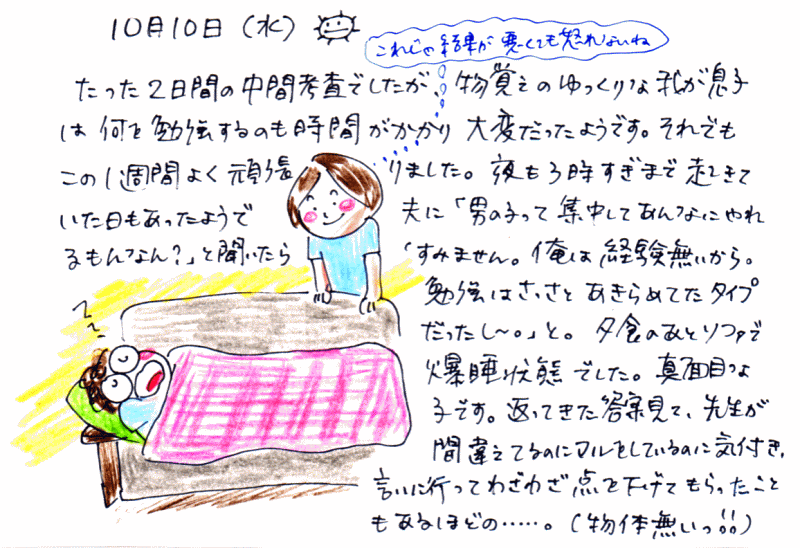 10月10日(水)
これじゃ結果が悪くても怒れないね
たった2日間の中間考査でしたが、物覚えのゆっくりな我が息子
は何を勉強するのも時間がかかり大変だったようです。それでも
この1週間よく頑張りました。夜も3時すぎまで起きて
いた日もあったようで夫に「男の子って集中してあんなにやれ
るもんなん?」と聞いたら「すみません。俺は経験無いから。
勉強はさっさとあきらめてたタイプ
だったし〜。」と。夕食のあとソファで
爆睡状態でした。真面目な
子です。返ってきた答案見て、先生が
間違えてるのにマルをしているのに気付き、
言いに行ってわざわざ点を下げてもらったこと
もあるほどの……。(勿体無いっ!!)
zzz